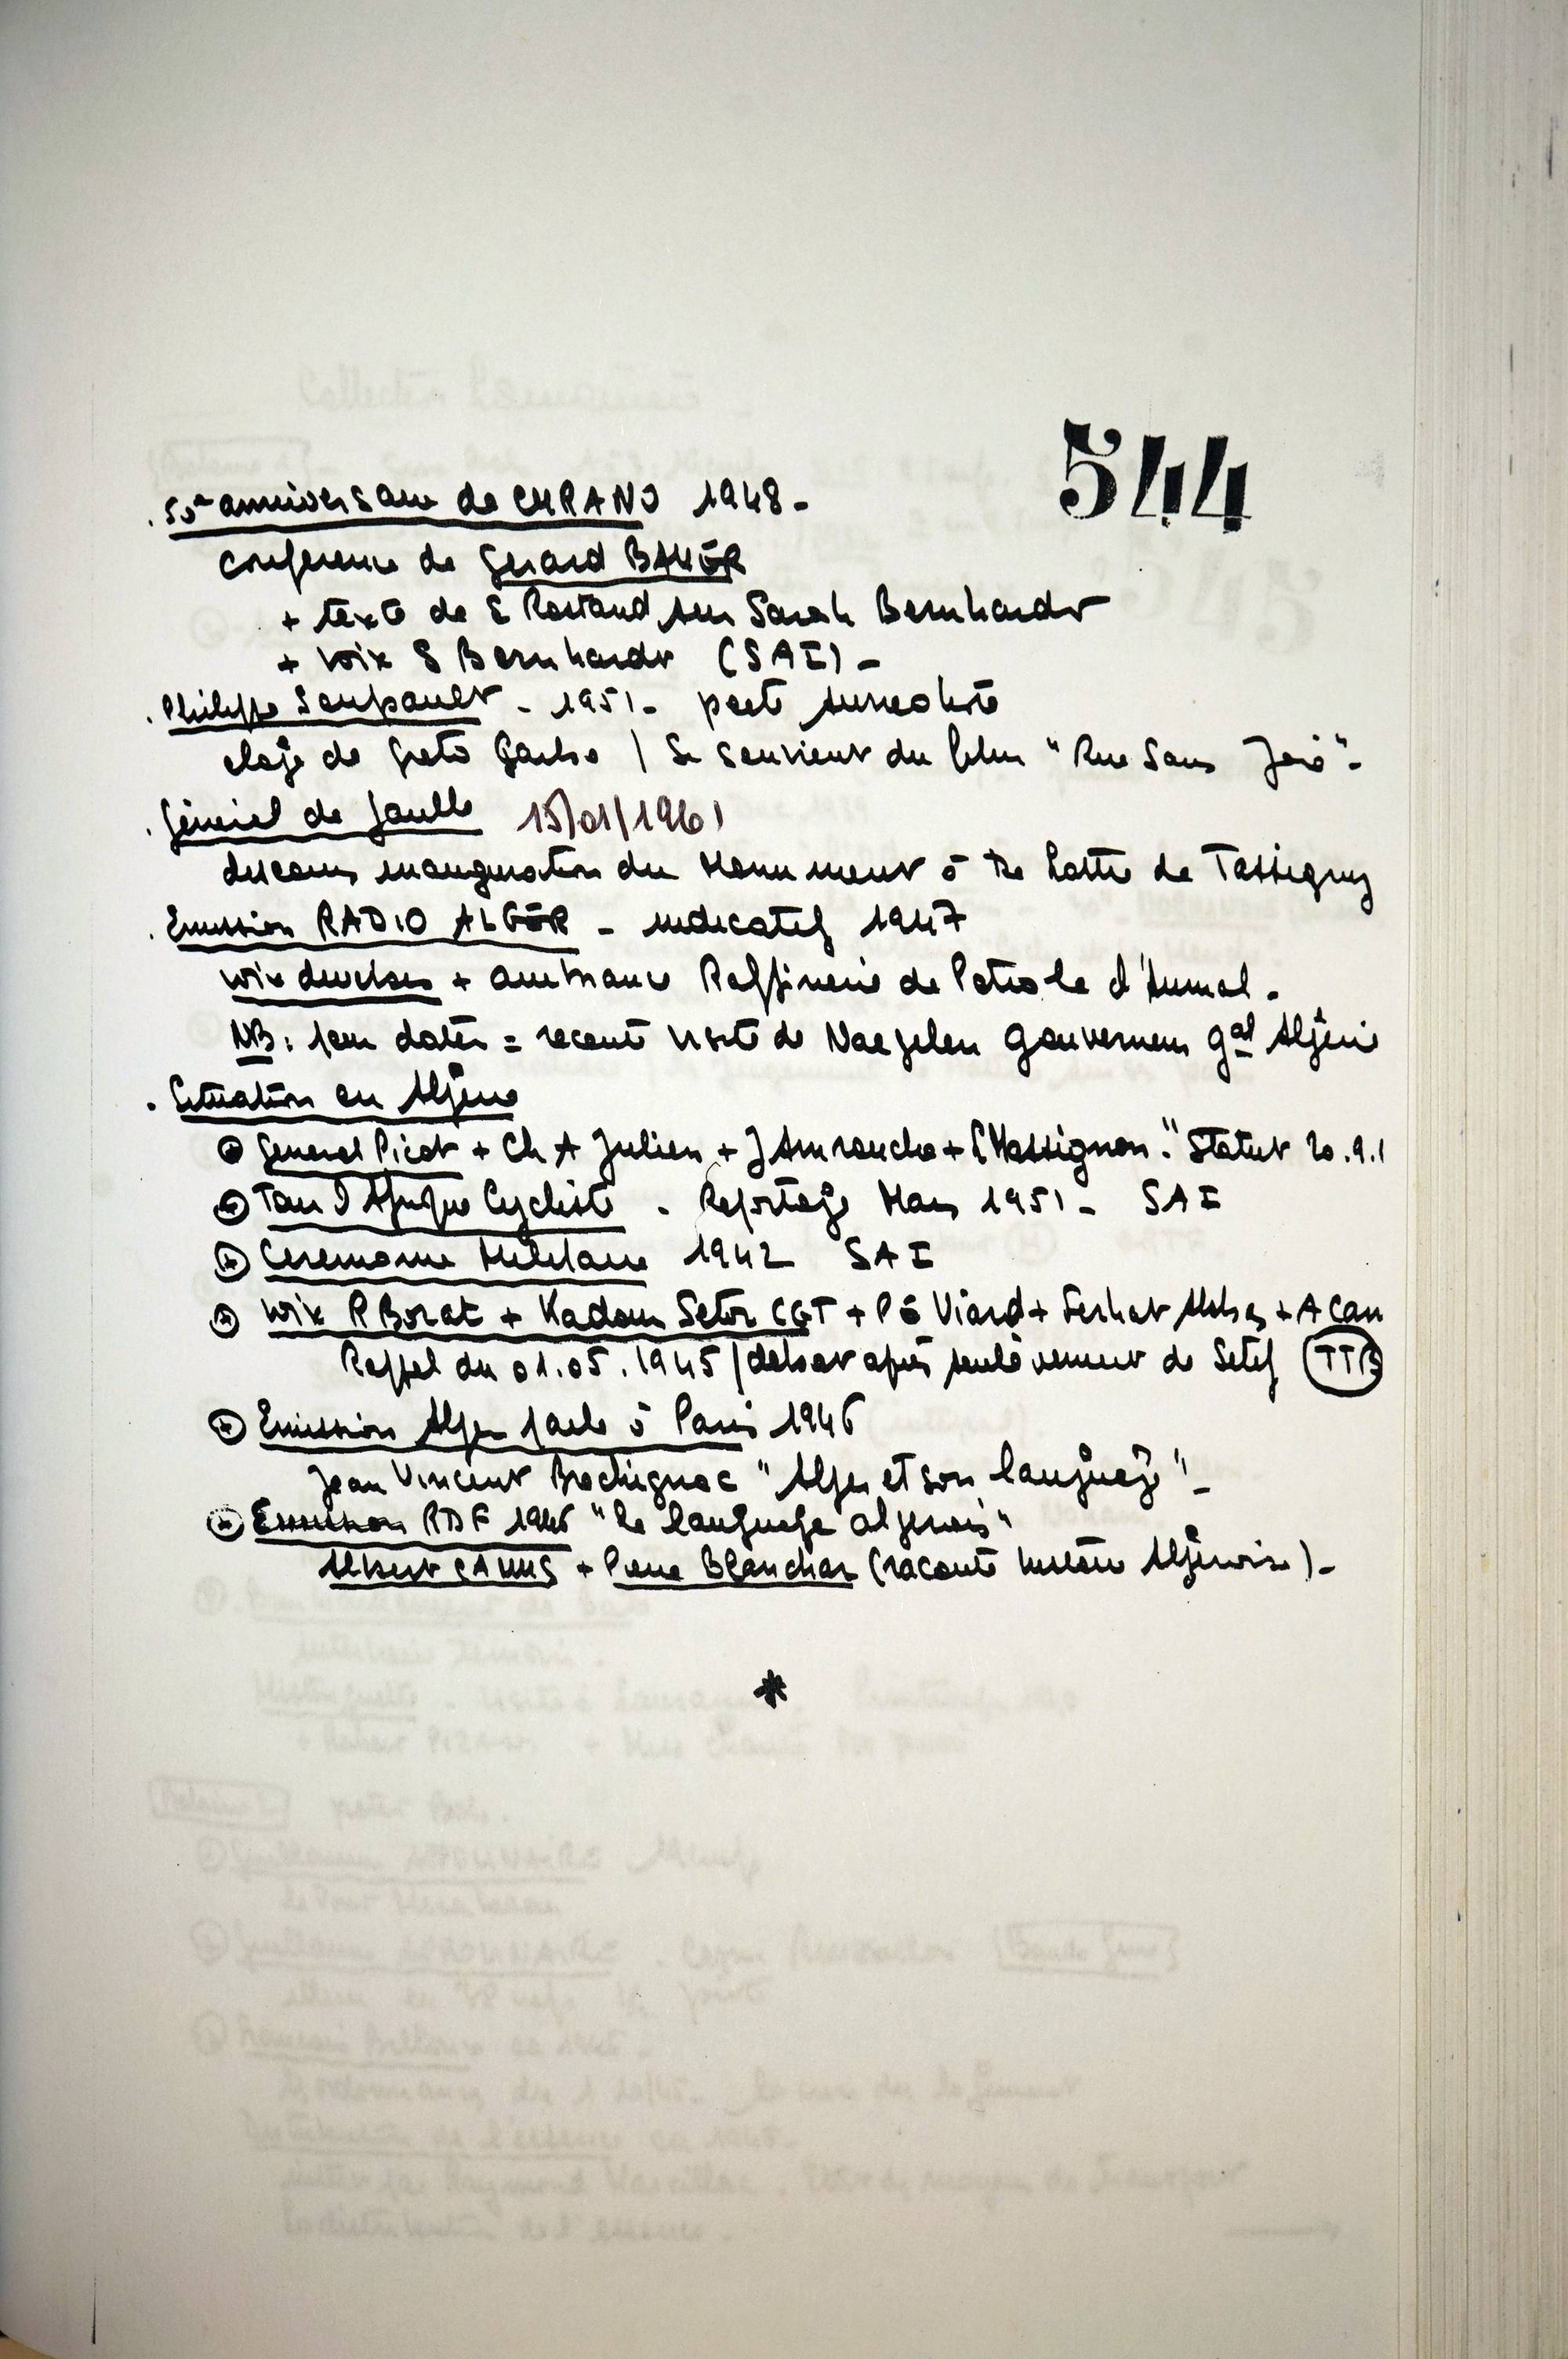 544
. 50e anniversaire de CYRANO 1948 -
conference de Gerard BAUËR
+ texte de E Rostand sur Sarah Bernhardt
+ voix S Bernhardt (SAI) -
. Philippe Soupault - 1951 - poete surrealiste
eloge de Greta Garbo / Se souvient du film "Rue Sans Joie" -
. Général de Gaulle 15/01/1961
discours inauguration du Monument à De Lattre de Tassigny
. Emission RADIO ALGER - indicatif 1947
voix diverses + ambiance Raffinerie de Petrole d'Aumal .
NB : pour dater = recente visite de Naegelen Gouverneur Gal Algérie
. Situation en Algérie
General Picot + Ch A Julien + J Amrouche + L Massignon . "Statut 20.9.1
Tour d'Afrique Cycliste . Reportage Mars 1951 - SAI
Ceremonie Militaire 1942 SAI
voix P Borat + Kadour CGT + P E Viard + Ferhat Abbas + A Cam
Rappel du 01.05.1945 / debat après soulèvement de Setif (TTB)
Emission Alger parle à Paris 1946
Jean Vincent Brechignac "Alger et son language" -
Emission RDF 1946 "le language algerois"
Albert CAMUS + Pierre Blanchar (raconte histoire Algéroise) -
*